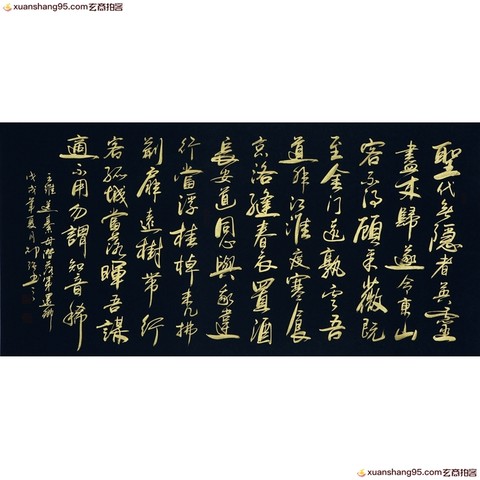 xuanshang95.com玄商拍客
xuanshang95.com玄商拍客
聖代無隱者英靈
盡来歸遂令東山
客不得顧采薇既
至金門遠孰云吾
道非江淮度寒食
京洛縫春衣置酒
長安道同心與我違
行當浮桂棹未几拂
荆扉遠樹帶行
客孤城當落暉吾謀
適不用勿謂知音稀
王維送綦毋潛落第還鄉
戊戌年夏月
xuanshang95.com玄商拍客
xuanshang95.com玄商拍客